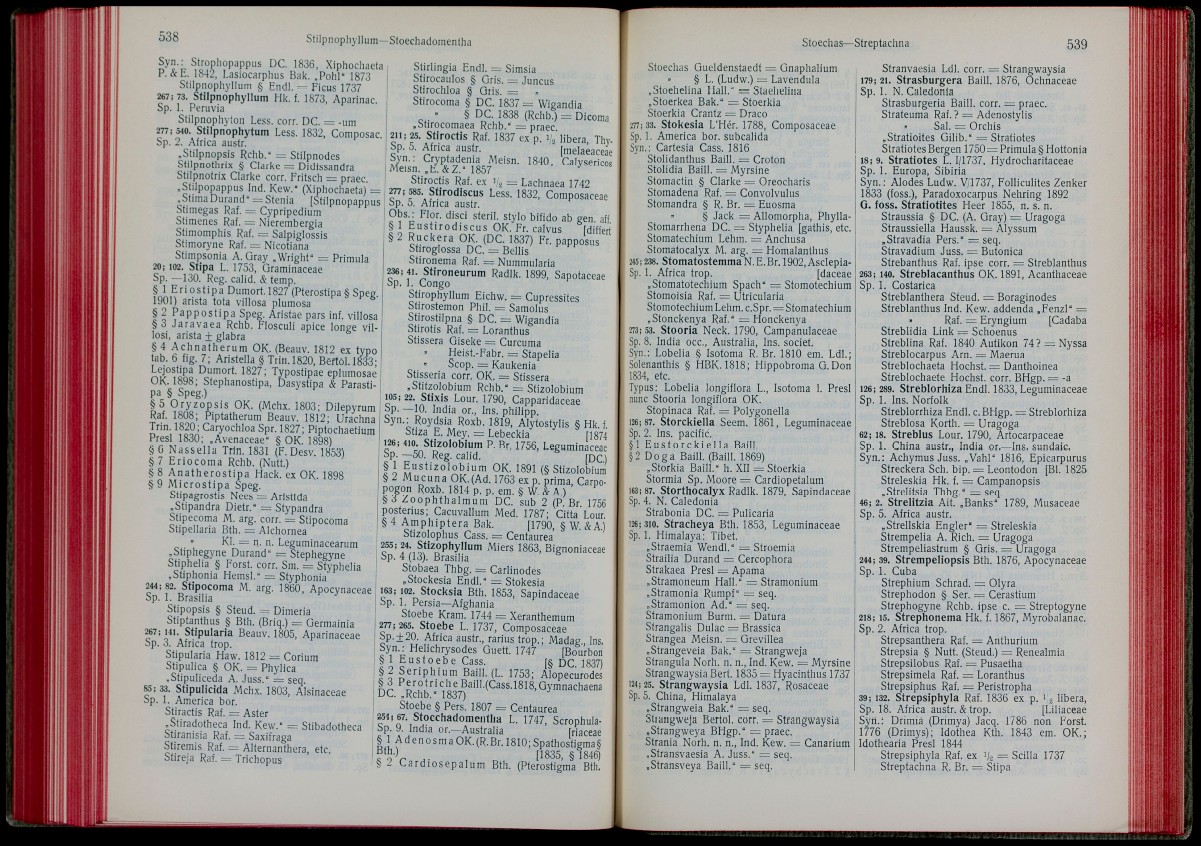 538
Stilpnophyllum—Stoechadomentha
Syn.: Strophopappus DC. 1836, Xiphochaeta
P. & E. 1842, Lasiocarphus Bak. „Pohl" 1873
Stilpnophyllum § Endl. = Ficus 1737
267; 73. Stilpnophyllum Hk. f. 1873, Aparinac.
Sp. 1. Peruvia
Stilpnophyton Less. corr. DC. = -um
277; 540. Stilpnophytum Less. 1832, Composac.
Sp. 2. Africa austr.
„Stilpnopsis Rchb." = Stilpnodes
Stilpnothrix § Clarke = Didissandra
Stilpnotrix Clarke corr. Fritsch = praec.
„Stilpopappus Ind. Kew." (Xiphochaeta) =
„Stima Durand" = Stenia [Stilpnopappus
Stimegas Raf. = Cypripedium
Stimenes Raf. = Nierembergia
Stimomphis Raf. = Salpiglossis
Stimoryne Raf. = Nicotiana
Stimpsonia A. Gray „Wright" = Primula
20; 102. Stipa L. 1753, Graminaceae
Sp. —130. Reg. calid. & temp.
§ 1 Eriostipa Dumort. 1827 (Pterostipa § Speg.
1901) arista tota villosa plumosa
§ 2 Pappostipa Speg. Aristae pars inf. villosa
§ 3 Jaravaea Rchb. Flosculi apice longe vil-
losi, arista ± glabra
§ 4 Achnatherum OK. (Beauv. 1812 ex typo
tab. 6 fig. 7; Aristella § Trin. 1820, Bertol. 1833;
Lejostipa Dumort. 1827; Typostipae eplumosae
OK. 1898; Stephanostipa, Dasystipa & Parasti-
pa § Speg.)
§ 5 Oryzopsis OK. (Mchx. 1803; Dilepyrum
Raf. 1808; Piptatherum Beauv. 1812; Urachna
Trin. 1820; Caryochloa Spr. 1827; Piptochaetium
Presl 1830; „Avenaceae" § OK. 1898)
§ 6 Nassella Trin. 1831 (F. Desv. 1853)
§ 7 Eriocoma Rchb. (Nutt.)
§ 8 Anatherostipa Hack. ex OK. 1898
§ 9 Microstipa Speg.
Stipagrostis Nees = Aristida
„Stipandra Dietr." = Stypandra
Stipecoma M. arg. corr. = Stipocoma
Stipellaria Bth. = Alchornea
" Kl. = n. n. Leguminacearum
„Stiphegyne Durand" = Stephegyne
Stiphelia § Forst. corr. Sm. = Styphelia
„Stiphonia Hemsl." = Styphonia
244; 82. Stipocoma M. arg. 1860, Apocynaceae
Sp. 1. Brasilia
Stipopsis § Steud. = Dimeria
Stiptanthus § Bth. (Briq.) = Germainia
267; 141. Stipularia Beauv. 1805, Aparinaceae
Sp. 3. Africa trop.
Stipularia Haw. 1812 = Corium
Stipulica § OK. = Phylica
„Stipuliceda A. Juss." = seq.
85; 33. Stipulicida Mchx. 1803, Alsinaceae
Sp. 1. America bor.
Stiractis Raf. = Aster
„Stiradotheca Ind. Kew." = Stibadotheca
Stiranisia Raf. = Saxifraga
Stiremis Raf. = Alternanthera, etc.
Stireja Raf. = Trichopus
Stirlingia Endl. = Simsia
Stirocaulos § Gris. = Juncus
Stirochloa § Gris. = "
Stirocoma § DC. 1837 = Wigandia
" § DC. 1838 (Rchb.) = Dicoma
„Stirocomaea Rchb." = praec.
211; 25. Stiroctis Raf. 1837 ex p. ½ libera, Thy-
Sp. 5. Africa austr. [melaeaceae
Syn.: Cryptadenia Meisn. 1840, Calysericos
Meisn. „E. & Z." 1857
Stiroctis Raf. ex ½ = Lachnaea 1742
277; 585. Stirodiscus Less. 1832, Composaceae
Sp. 5. Africa austr.
Obs.: Flor. disci steril. stylo bifido ab gen. affi.
§ 1 Eustirodiscus OK. Fr. calvus [differt
§ 2 Ruckera OK. (DC. 1837) Fr. papposus
Stiroglossa DC. = Bellis
Stironema Raf. = Nummularia
236; 41. Stironeurum Radlk. 1899, Sapotaceae
Sp. 1. Congo
Stirophyllum Eichw. = Cupressites
Stirostemon Phil. = Samolus
Stirostilpna § DC. = Wigandia
Stirotis Raf. = Loranthus
Stissera Giseke = Curcuma
" Heist.-Fabr. = Stapelia
" Scop. = Kaukenia
Stisseria corr. OK. = Stissera
„Stitzolobium Rchb." = Stizolobium
105; 22. Stixis Lour. 1790, Capparidaceae
Sp. —10. India or., Ins. philipp.
Syn.: Roydsia Roxb. 1819, Alytostylis § Hk. f.
Stiza E. Mey. = Lebeckia [1874
126; 410. Stizolobium P. Br. 1756, Leguminaceae
Sp. —50. Reg. calid. [DC.)
§ 1 Eustizolobium OK. 1891 (§ Stizolobium
§ 2 Mucuna OK. (Ad. 1763 ex p. prima, Carpo-
pogon Roxb. 1814 p. p. em. § W. & A.)
§ 3 Zoophthalmum DC. sub 2 (P. Br. 1756
posterius; Cacuvallum Med. 1787; Citta Lour.
§ 4 Amphiptera Bak. [1790, § W. & A.)
Stizolophus Cass. = Centaurea
255; 24. Stizophyllum Miers 1863, Bignoniaceae
Sp. 4 (13). Brasilia
Stobaea Thbg. = Carlinodes
„Stockesia Endl." = Stokesia
163; 102. Stocksia Bth. 1853, Sapindaceae
Sp. 1. Persia—Afghania
Stoebe Kram. 1744 = Xeranthemum
277; 265. Stoebe L. 1737, Composaceae
Sp. ± 20. Africa austr., rarius trop.; Madag., Ins.
Syn.: Helichrysodes Guett. 1747 [Bourbon
§ 1 Eustoebe Cass. [§ DC. 1837)
§ 2 Seriphium Baill. (L. 1753; Alopecurodes
§ 3 Perotriche Baill. (Cass. 1818, Gymnachaena
DC. „Rchb." 1837)
Stoebe § Pers. 1807 = Centaurea
251; 67. Stoechadomentha L. 1747, Scrophula-
Sp. 9. India or.—Australia [riaceae
§ 1 Adenosma OK. (R. Br. 1810; Spathostigma §
Bth.) [1835, § 1846)
§ 2 Cardiosepalum Bth. (Pterostigma Bth.
Stoechas—Streptachna
539
Stoechas Gueldenstaedt = Gnaphalium
" § L. (Ludw.) = Lavendula
„Stoehelina Hall." = Staehelina
„Stoerkea Bak." = Stoerkia
Stoerkia Crantz = Draco
277; 33. Stokesia L'Hér. 1788, Composaceae
Sp. 1. America bor. subcalida
Syn.: Cartesia Cass. 1816
Stolidanthus Baill. = Croton
Stolidia Baill. = Myrsine
Stomactin § Clarke = Oreocharis
Stomadena Raf. = Convolvulus
Stomandra § R. Br. = Euosma
" § Jack = Allomorpha, Phylla-
Stomarrhena DC. = Styphelia [gathis, etc.
Stomatechium Lehm. = Anchusa
Stomatocalyx M. arg. = Homalanthus
245; 238. Stomatostemma N. E. Br. 1902, Asclepia-
Sp. 1. Africa trop. [daceae
„Stomatotechium Spach" = Stomotechium
Stomoisia Raf. = Utricularia
Stomotechium Lehm. c. Spr. = Stomatechium
„Stonckenya Raf." = Honckenya
273; 53. Stooria Neck. 1790, Campanulaceae
Sp. 8. India occ., Australia, Ins. societ.
Syn.: Lobelia § Isotoma R. Br. 1810 em. Ldl.;
Solenanthis § HBK. 1818; Hippobroma G. Don
1834, etc.
Typus: Lobelia longiflora L., Isotoma l. Presl
nunc Stooria longiflora OK.
Stopinaca Raf. = Polygonella
126; 87. Storckiella Seem. 1861, Leguminaceae
Sp. 2. Ins. pacific.
§ 1 Eustorckiella Baill.
§ 2 Doga Baill. (Baill. 1869)
„Storkia Baill." h. XII = Stoerkia
Stormia Sp. Moore = Cardiopetalum
163; 87. Storthocalyx Radlk. 1879, Sapindaceae
Sp. 4. N. Caledonia
Strabonia DC. = Pulicaria
126; 310. Stracheya Bth. 1853, Leguminaceae
Sp. 1. Himalaya: Tibet.
„Straemia Wendl." = Stroemia
Strailia Durand = Cercophora
Strakaea Presl = Apama
„Stramoneum Hall." = Stramonium
„Stramonia Rumpf" = seq.
„Stramonion Ad." = seq.
Stramonium Burm. = Datura
Strangalis Dulac = Brassica
Strangea Meisn. = Grevillea
„Strangeveia Bak." = Strangweja
Strangula Norh. n. n., Ind. Kew. = Myrsine
Strangwaysia Bert. 1835 = Hyacinthus 1737
124; 25. Strangwaysia Ldl. 1837, Rosaceae
Sp. 5. China, Himalaya
„Strangweia Bak." = seq.
Strangweja Bertol. corr. = Strangwaysia
„Strangweya BHgp." = praec.
Strania Norh. n. n., Ind. Kew. = Canarium
„Stransvaesia A. Juss." = seq.
„Stransveya Baill." = seq.
Stranvaesia Ldl. corr. = Strangwaysia
179; 21. Strasburgera Baill. 1876, Ochnaceae
Sp. 1. N. Caledonia
Strasburgeria Baill. corr. = praec.
Strateuma Raf. ? = Adenostylis
" Sal. = Orchis
„Stratioites Gilib." = Stratiotes
Stratiotes Bergen 1750 = Primula § Hottonia
18; 9. Stratiotes L. I/1737, Hydrocharitaceae
Sp. 1. Europa, Sibiria
Syn.: Alodes Ludw. V/1737, Folliculites Zenker
1833 (foss.), Paradoxocarpus Nehring 1892
G. foss. Stratiotites Heer 1855, n. s. n.
Straussia § DC. (A. Gray) = Uragoga
Straussiella Haussk. = Alyssum
„Stravadia Pers." = seq.
Stravadium Juss. = Butonica
Strebanthus Raf. ipse corr. = Streblanthus
263; 140. Streblacanthus OK. 1891, Acanthaceae
Sp. 1. Costarica
Streblanthera Steud. = Boraginodes
Streblanthus Ind. Kew. addenda „Fenzl" =
" Raf. = Eryngium [Cadaba
Streblidia Link = Schoenus
Streblina Raf. 1840 Autikon 74? = Nyssa
Streblocarpus Arn. = Maerua
Streblochaeta Hochst. = Danthoinea
Streblochaete Hochst. corr. BHgp. = -a
126; 289. Streblorhiza Endl. 1833, Leguminaceae
Sp. 1. Ins. Norfolk
Streblorrhiza Endl. c. BHgp. = Streblorhiza
Streblosa Korth. = Uragoga
62; 18. Streblus Lour. 1790, Artocarpaceae
Sp. 1. China austr., India or.—Ins. sundaic.
Syn.: Achymus Juss. „Vahl" 1816, Epicarpurus
Streckera Sch. bip. = Leontodon [Bl. 1825
Streleskia Hk. f. = Campanopsis
„Strelitsia Thbg." = seq.
46; 2. Strelitzia Ait. „Banks" 1789, Musaceae
Sp. 5. Africa austr.
„Strellskia Engler" = Streleskia
Strempelia A. Rich. = Uragoga
Strempeliastrum § Gris. = Uragoga
244; 39. Strempeliopsis Bth. 1876, Apocynaceae
Sp. 1. Cuba
Strephium Schrad. = Olyra
Strephodon § Ser. = Cerastium
Strephogyne Rchb. ipse c. = Streptogyne
218; 15. Strephonema Hk. f. 1867, Myrobalanac.
Sp. 2. Africa trop.
Strepsanthera Raf. = Anthurium
Strepsia § Nutt. (Steud.) = Renealmia
Strepsilobus Raf. = Pusaetha
Strepsimela Raf. = Loranthus
Strepsiphus Raf. = Peristropha
39; 132. Strepsiphyla Raf. 1836 ex p. ½ libera,
Sp. 18. Africa austr. & trop. [Liliaceae
Syn.: Drimia (Drimya) Jacq. 1786 non Forst.
1776 (Drimys); Idothea Kth. 1843 em. OK.;
Idothearia Presl 1844
Strepsiphyla Raf. ex ½ = Scilla 1737
Streptachna R. Br. = Stipa